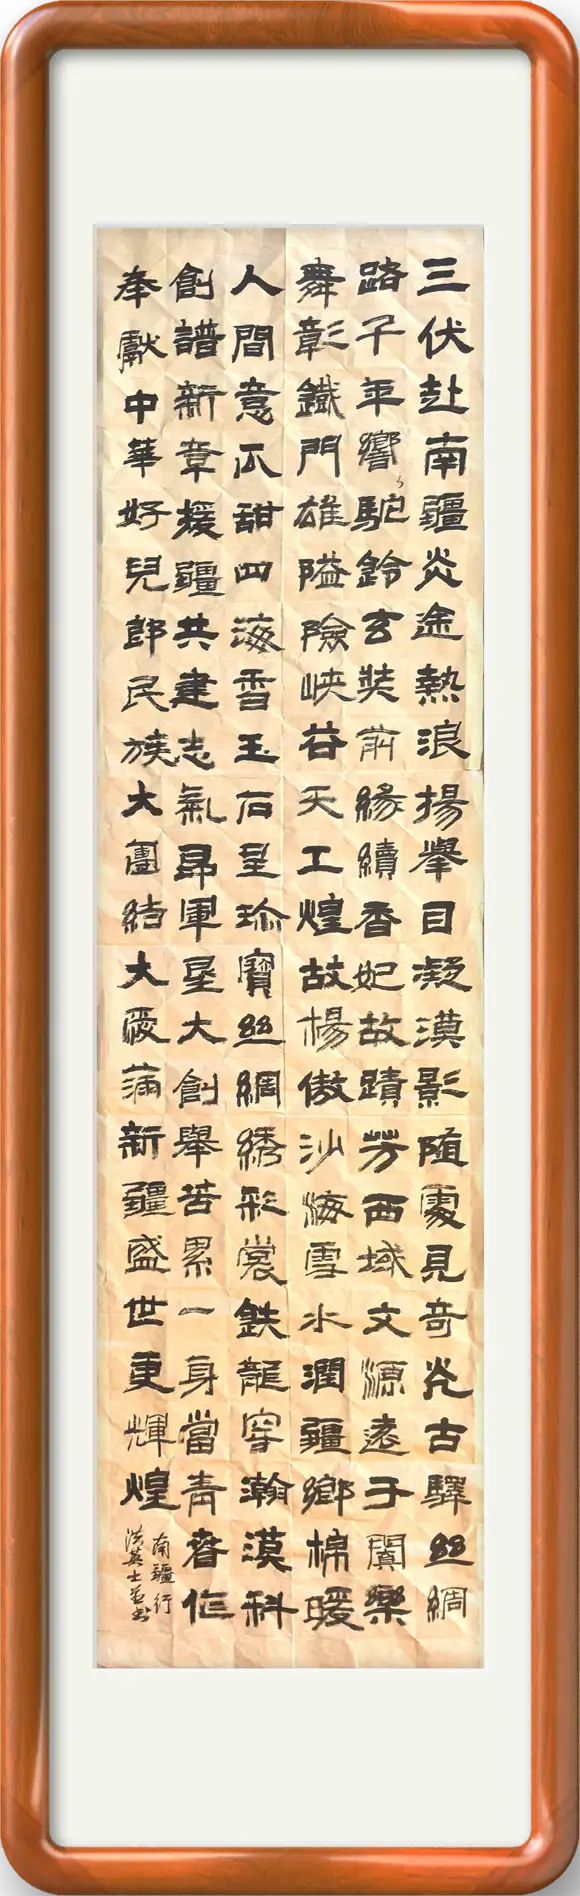 三伏赴南疆炎途熱浪揚舉目凝漠影随處見奇光古驛丝綢
路千年響駝鈴玄奘前緣續香妃故蹟芳西域文源遠于闐樂
舞彰鐵門雄隘險峡谷天工煌故楊傲沙海雪水潤疆鄉棉暖
人間意瓜甜四海香玉石呈珍寶丝綢綉彩裳鉄龍穿瀚漠科
創譜新章援疆共建志氣昂軍垦大創舉苦累一身當青春作
奉獻中華好兒郎民族大團結大愛满新疆盛世更輝煌
南疆行
洪英士並书